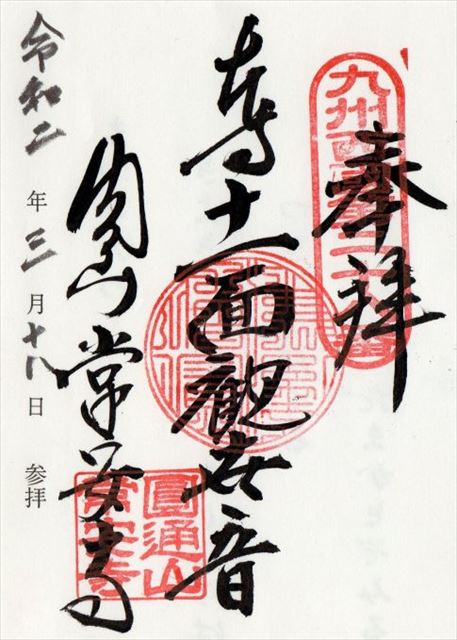 奉拝
九州西
本尊十一面觀世音
山常安寺
圓通山
常安寺
令和二年三月十八日 参拝